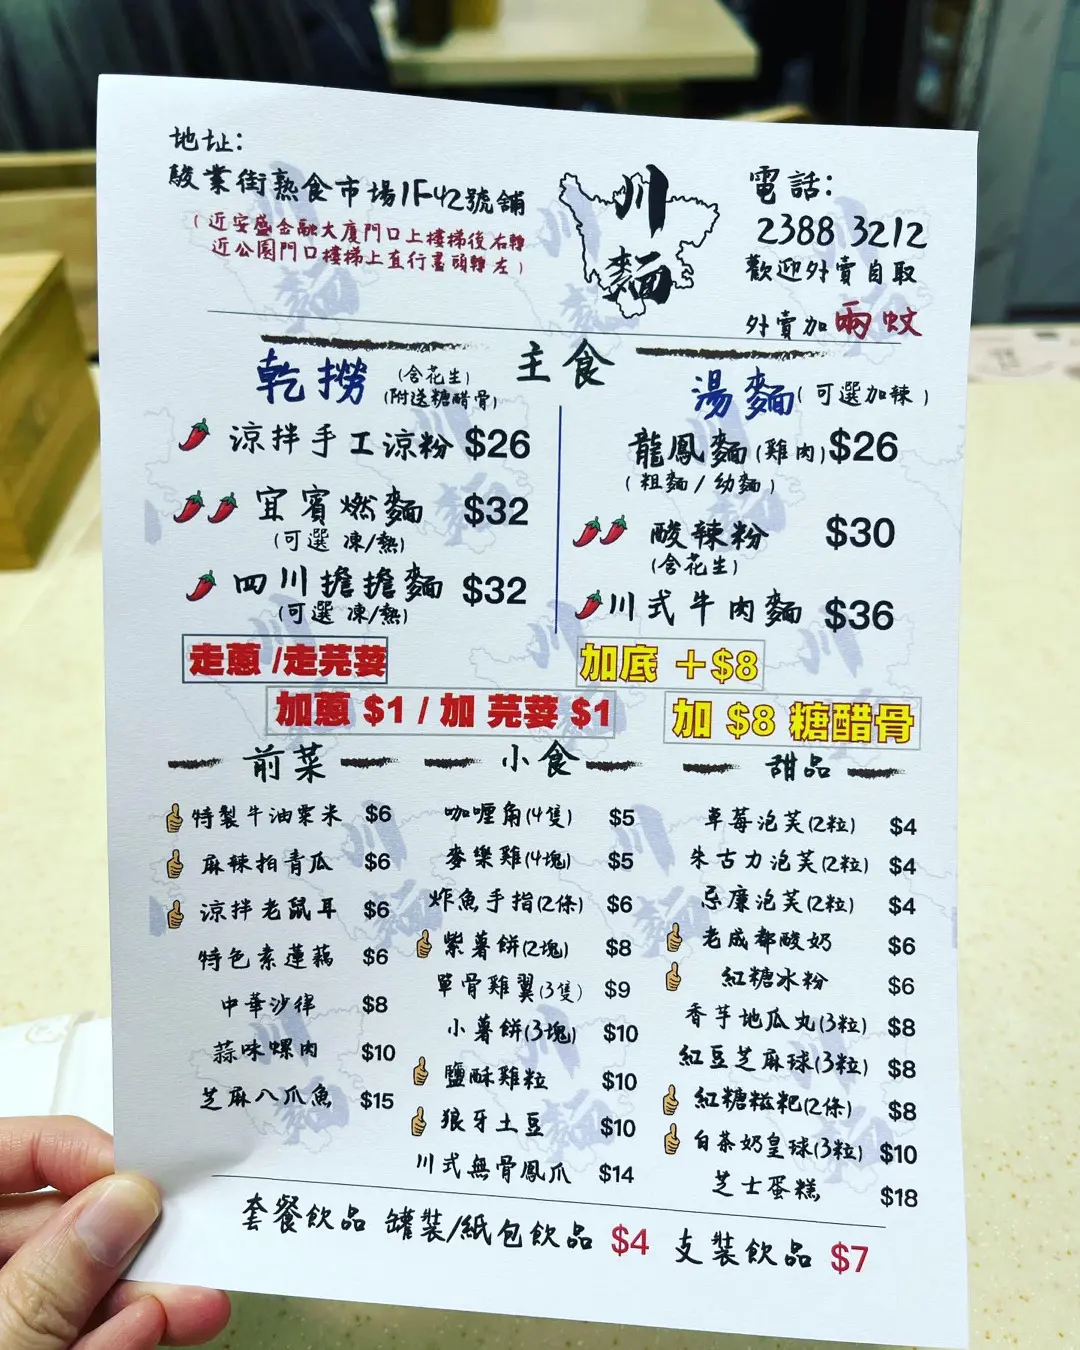 地址：
駿業街熟食市場1F42號舖
（近安盛金融大廈門口上樓梯後右轉
近公園門口樓梯上直行盡頭轉左）
川
麵
電話：
2388 3212
歡迎外賣自取
外賣加兩蚊
主食
乾撈 （含花生）
（附送糖醋骨）
涼拌手工涼粉 $26
宜賓燃麵 $32
（可選 凍/熱）
四川擔擔麵 $32
（可選 凍/熱）
湯麵（可選加辣）
龍鳳麵（雞肉）$26
（粗麵/幼麵）
酸辣粉 $30
（含花生）
川式牛肉麵 $36
走蔥 /走芫荽
加底 ＋$8
加蔥 $1 / 加 芫荽 $1
加 $8 糖醋骨
前菜
特製牛油粟米 $6
麻辣拍青瓜 $6
涼拌老鼠耳 $6
特色素蓮藕 $6
中華沙律 $8
蒜味螺肉 $10
芝麻八爪魚 $15
小食
咖喱角（4隻） $5
麥樂雞（4塊） $5
炸魚手指（2條） $6
紫薯餅（2塊） $8
單骨雞翼（3隻） $9
小薯餅（3塊） $10
鹽酥雞粒 $10
狼牙土豆 $10
川式無骨鳳爪 $14
甜品
草莓泡芙（2粒） $4
朱古力泡芙（2粒） $4
忌廉泡芙（2粒） $4
老成都酸奶 $6
紅糖冰粉 $6
香芋地瓜丸（3粒） $8
紅豆芝麻球（3粒） $8
紅糖糍粑（2條） $8
白茶奶皇球（3粒） $10
芝士蛋糕 $18
套餐飲品 罐裝/紙包飲品 $4 支裝飲品 $7